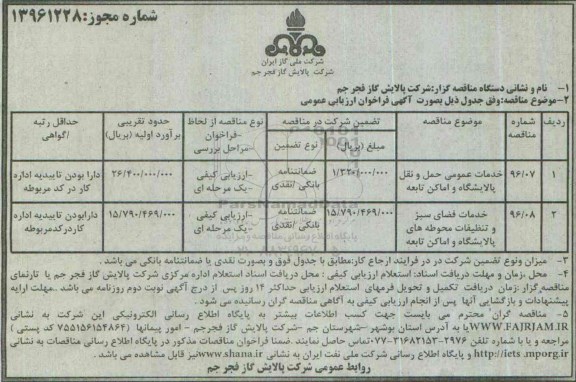 شماره مجوز: ۱۳۹۶۱۲۲۸
شرکت ملی گاز ایران
شرکت پالایش گاز فجر جم
۱- نام و نشانی دستگاه مناقصه گزار: شرکت پالایش گاز فجر جم
۲- موضوع مناقصه: وفق جدول ذیل بصورت آگهی فراخوان ارزیابی عمومی
ردیف شماره مناقصه موضوع مناقصه تضمین شرکت در مناقصه مبلغ (ریال) نوع تضمین نوع مناقصه از لحاظ -فراخوان -مراحل بررسی حدود تقریبی برآورد اولیه (ریال) حداقل رتبه /گواهی
۱ ۹۶/۰۷ خدمات عمومی حمل و نقل پالایشگاه و اماکن تابعه ۱/۳۲۰/۰۰۰/۰۰۰ ضمانتنامه بانکی /نقدی -ارزیابی کیفی -یک مرحله ای ۲۶/۴۰۰/۰۰۰/۰۰۰ دارا بودن تاییدیه اداره کار در کد مربوطه
۲ ۹۶/۰۸ خدمات فضای سبز و تنظیفات محوطه های پالایشگاه و اماکن تابعه ۱۵/۷۹۰/۴۶۹/۰۰۰ ضمانتنامه بانکی /نقدی -ارزیابی کیفی -یک مرحله ای ۱۵/۷۹۰/۴۶۹/۰۰۰ دارابودن تاییدیه اداره کاردرکدمربوطه
۳- میزان ونوع تضمین شرکت در در فرایند ارجاع کار: مطابق با جدول فوق و بصورت نقدی یا ضمانتنامه بانکی می باشد.
۴- محل ،زمان و مهلت دریافت اسناد: استعلام ارزیابی کیفی : محل دریافت اسناد استعلام اداره مرکزی شرکت پالایش گاز فجر جم یا تارنمای
مناقصه گزار ،زمان دریافت تکمیل و تحویل فرمهای استعلام ارزیابی حداکثر ۱۴ روز پس از درج آگهی نوبت دوم روزنامه می باشد. .مهلت ارایه
پیشنهادات و بازگشایی آنها پس از انجام ارزیابی کیفی به آگاهی مناقصه گران رسانیده می شود.
۵- مناقصه گران محترم می بایست جهت کسب اطلاعات بیشتر به پایگاه اطلاع رسانی الکترونیکی این شرکت به نشانی
WWW.FAJRJAM.IR یا به آدرس استان بوشهر –شهرستان جم –شرکت پالایش گاز فجرجم - امور پیمانها (۷۵۵۱۵۶۱۵۴۸۶۴ کد پستی )
مراجعه و یا با شماره تلفن ۲۹۷۶-۰۷۷-۳۱۶۸۲۱۵۳ تماس حاصل نمایند .ضمنا فراخوان مناقصات مذکور در پایگاه اطلاع رسانی مناقصات به نشانی
http://iets .mporg.ir و پایگاه اطلاع رسانی شرکت ملی نفت ایران به نشانی www.shana.ir نیز قابل مشاهده می باشد .
روابط عمومی شرکت پالایش گاز فجر جم